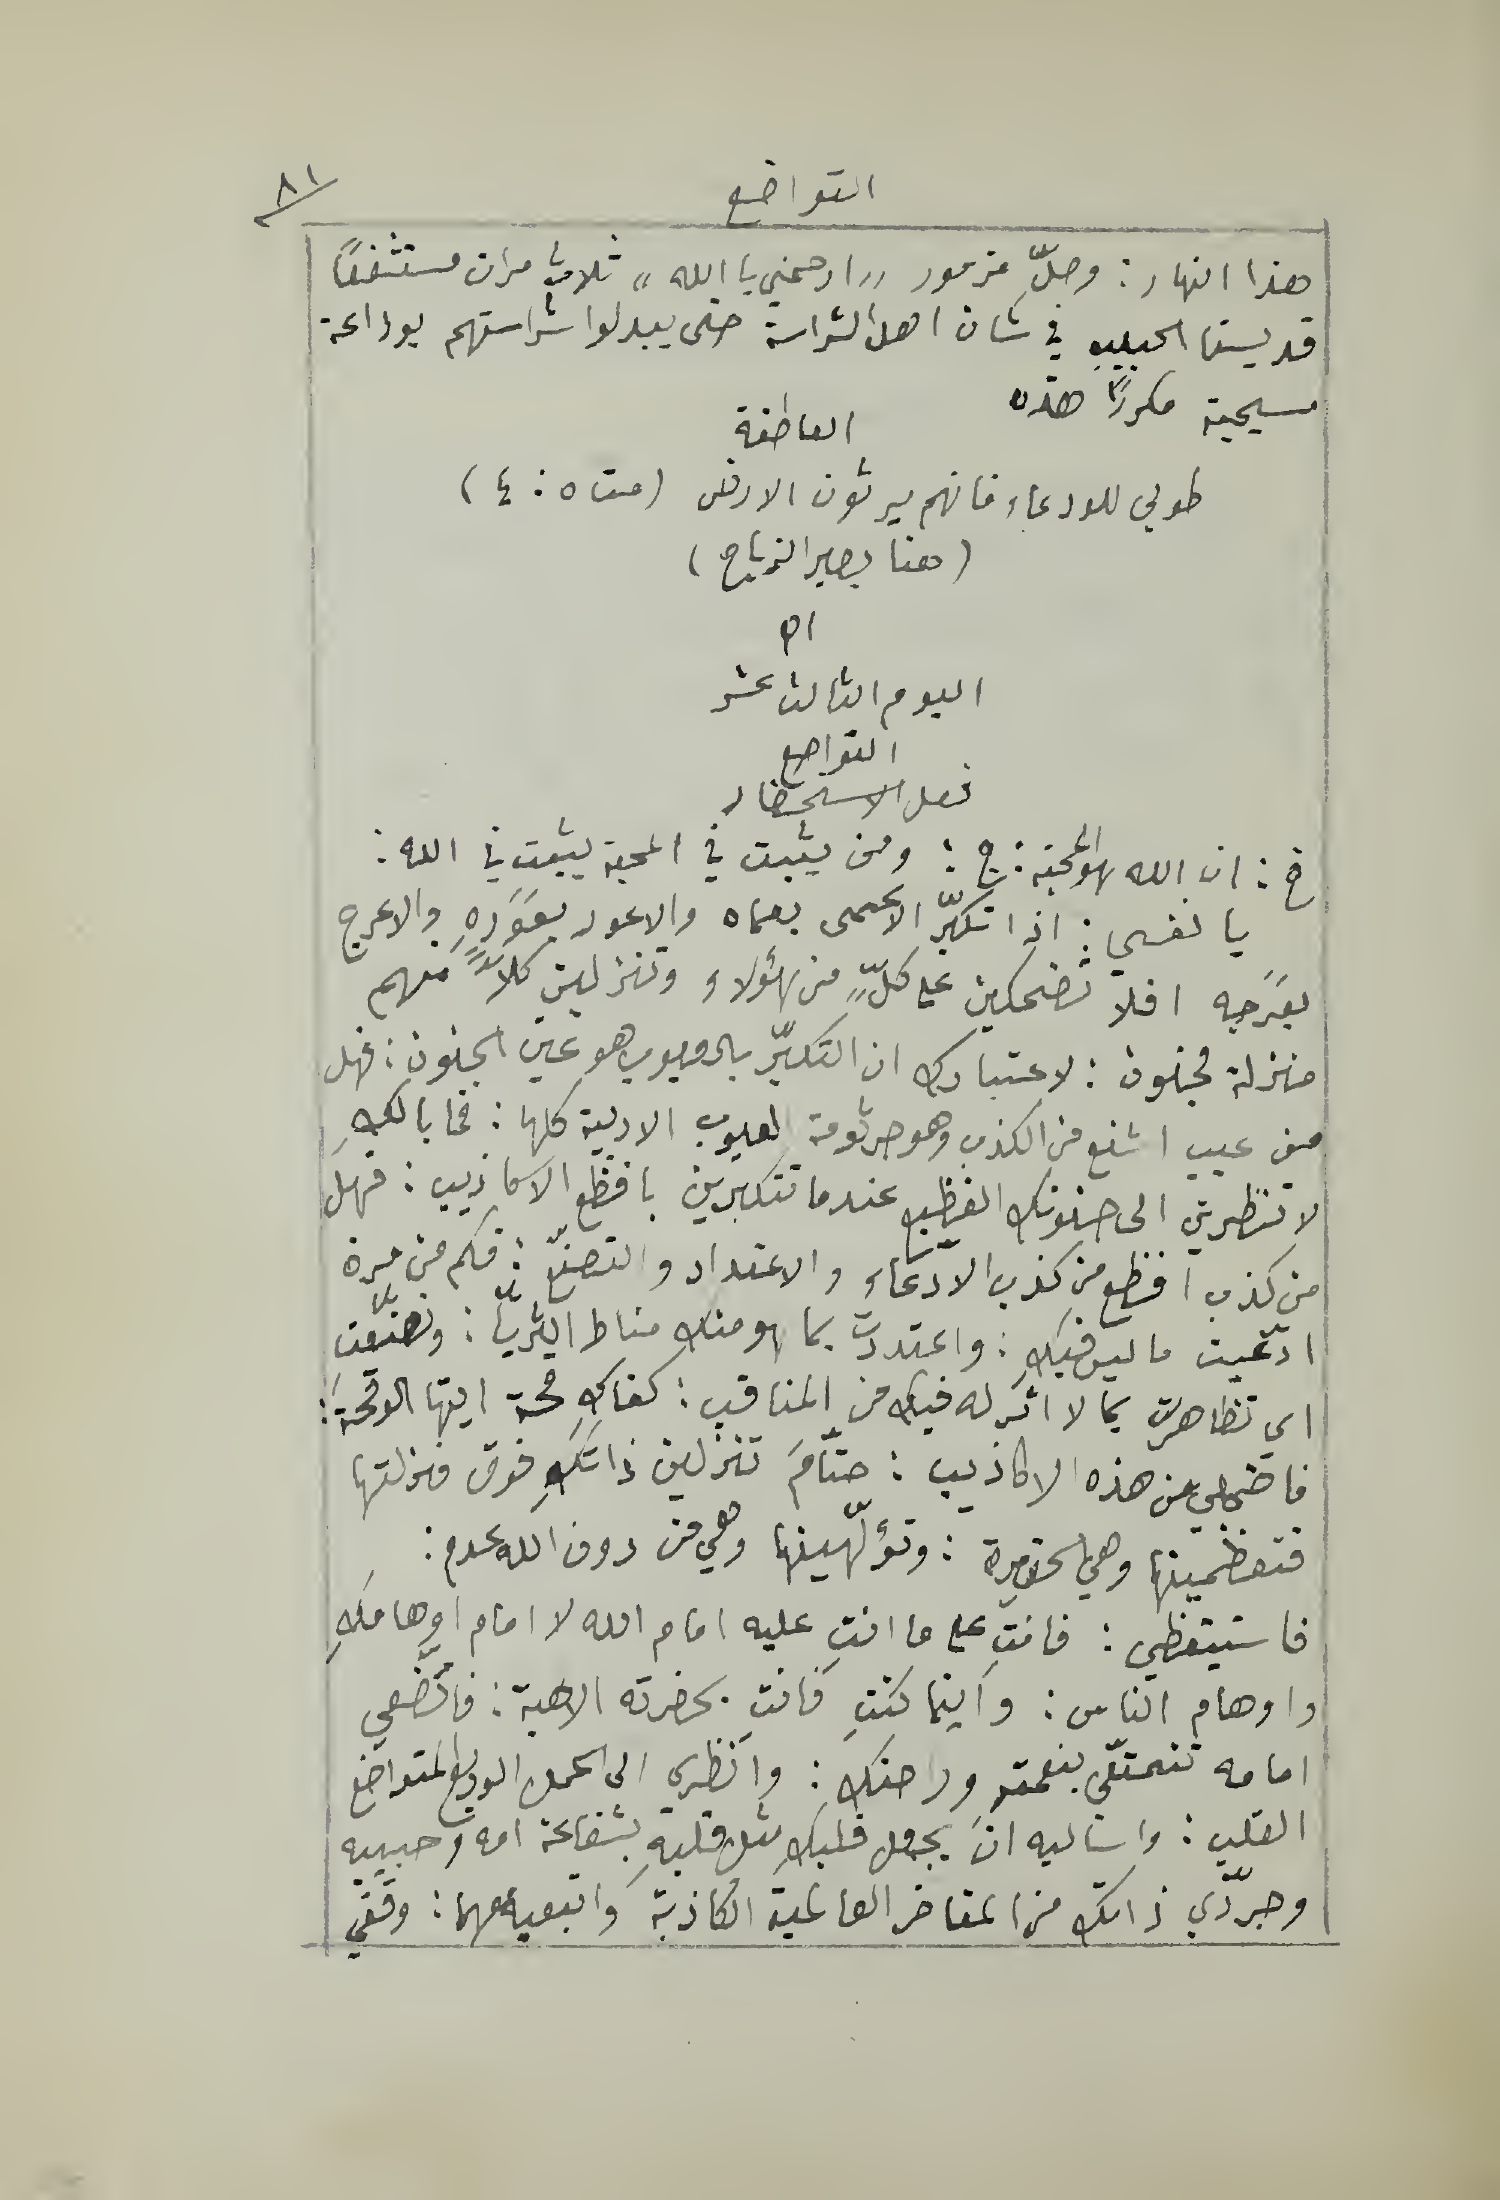 التواضع
٨١
هذا النهار : وصلِّ مزمور ,, ارحمني يا الله ,, ثلاث مرات مستشفعًا
قديسنا الحبيب في شان اهل الشراسة حتى يبدلوا شراستهم بوداعة
مسيحية مكررًا هذه
العاطفة
طوبى للودعاء فانهم يرثون الارض (مت ٥ : ٤ )
( هنا يصير الزياح )
اه
اليوم الثالث عشر
التواضع
فعل الاستحضار
خ : ان الله هو المحبة : ج : ومن يثبت في المحبة يثبت في الله :
يا نفسي : اذا تكبّر الاعمى بعماه والاعور بعَوَرِهِ والاعرج
بعَرَجِه افلا تضحكين على كلٍّ من هؤلاء وتنزلين كلاًّ منهم
منزلة مجنون : لاعتبارك ان التكبّر بالعيوب هو عين الجنون : فهل
من عيب اشنع من الكذب وهو جرثومة العيوب الادبية كلها : فما بالكِ
لا تنظرين الى جنونك الفظيع عندما تتكبرين بافظع الاكاذيب : فهل
من كذب افظع من كذب الادّعاء والاعتداد والتصنّع : فكم من مرة
ادّعيت ما ليس فيكِ : واعتددتِ بما هو منك مناط الثريّا : وتصنّعتِ
اي تظاهرتِ بما لا اثر له فيك من المناقب : كفاكِ قحة ايتها الوقحة :
فاخجلي من هذه الاكاذيب : حتّامَ تنزلين ذاتكِ فوق منزلتها
فتعظمينها وهي الحقيرة : وتؤلّهينها وهي من دون الله عدم :
فاستيقظي : فانتِ على ما انتِ عليه امام الله لا امام اوهامكِ
واوهام الناس : واينما كنتِ فانتِ بحضرته الالهية : فاتّضعي
امامه تتمتّعي بنعمته وراحتك : وانظري الى الحمل الوديع المتواضع
القلب : واساليه ان يجعل قلبكِ مثل قلبه بشفاعة امه وحبيبه
وجرّدي ذاتك من المفاخر العالمية الكاذبة واتبعيهما : وقفي